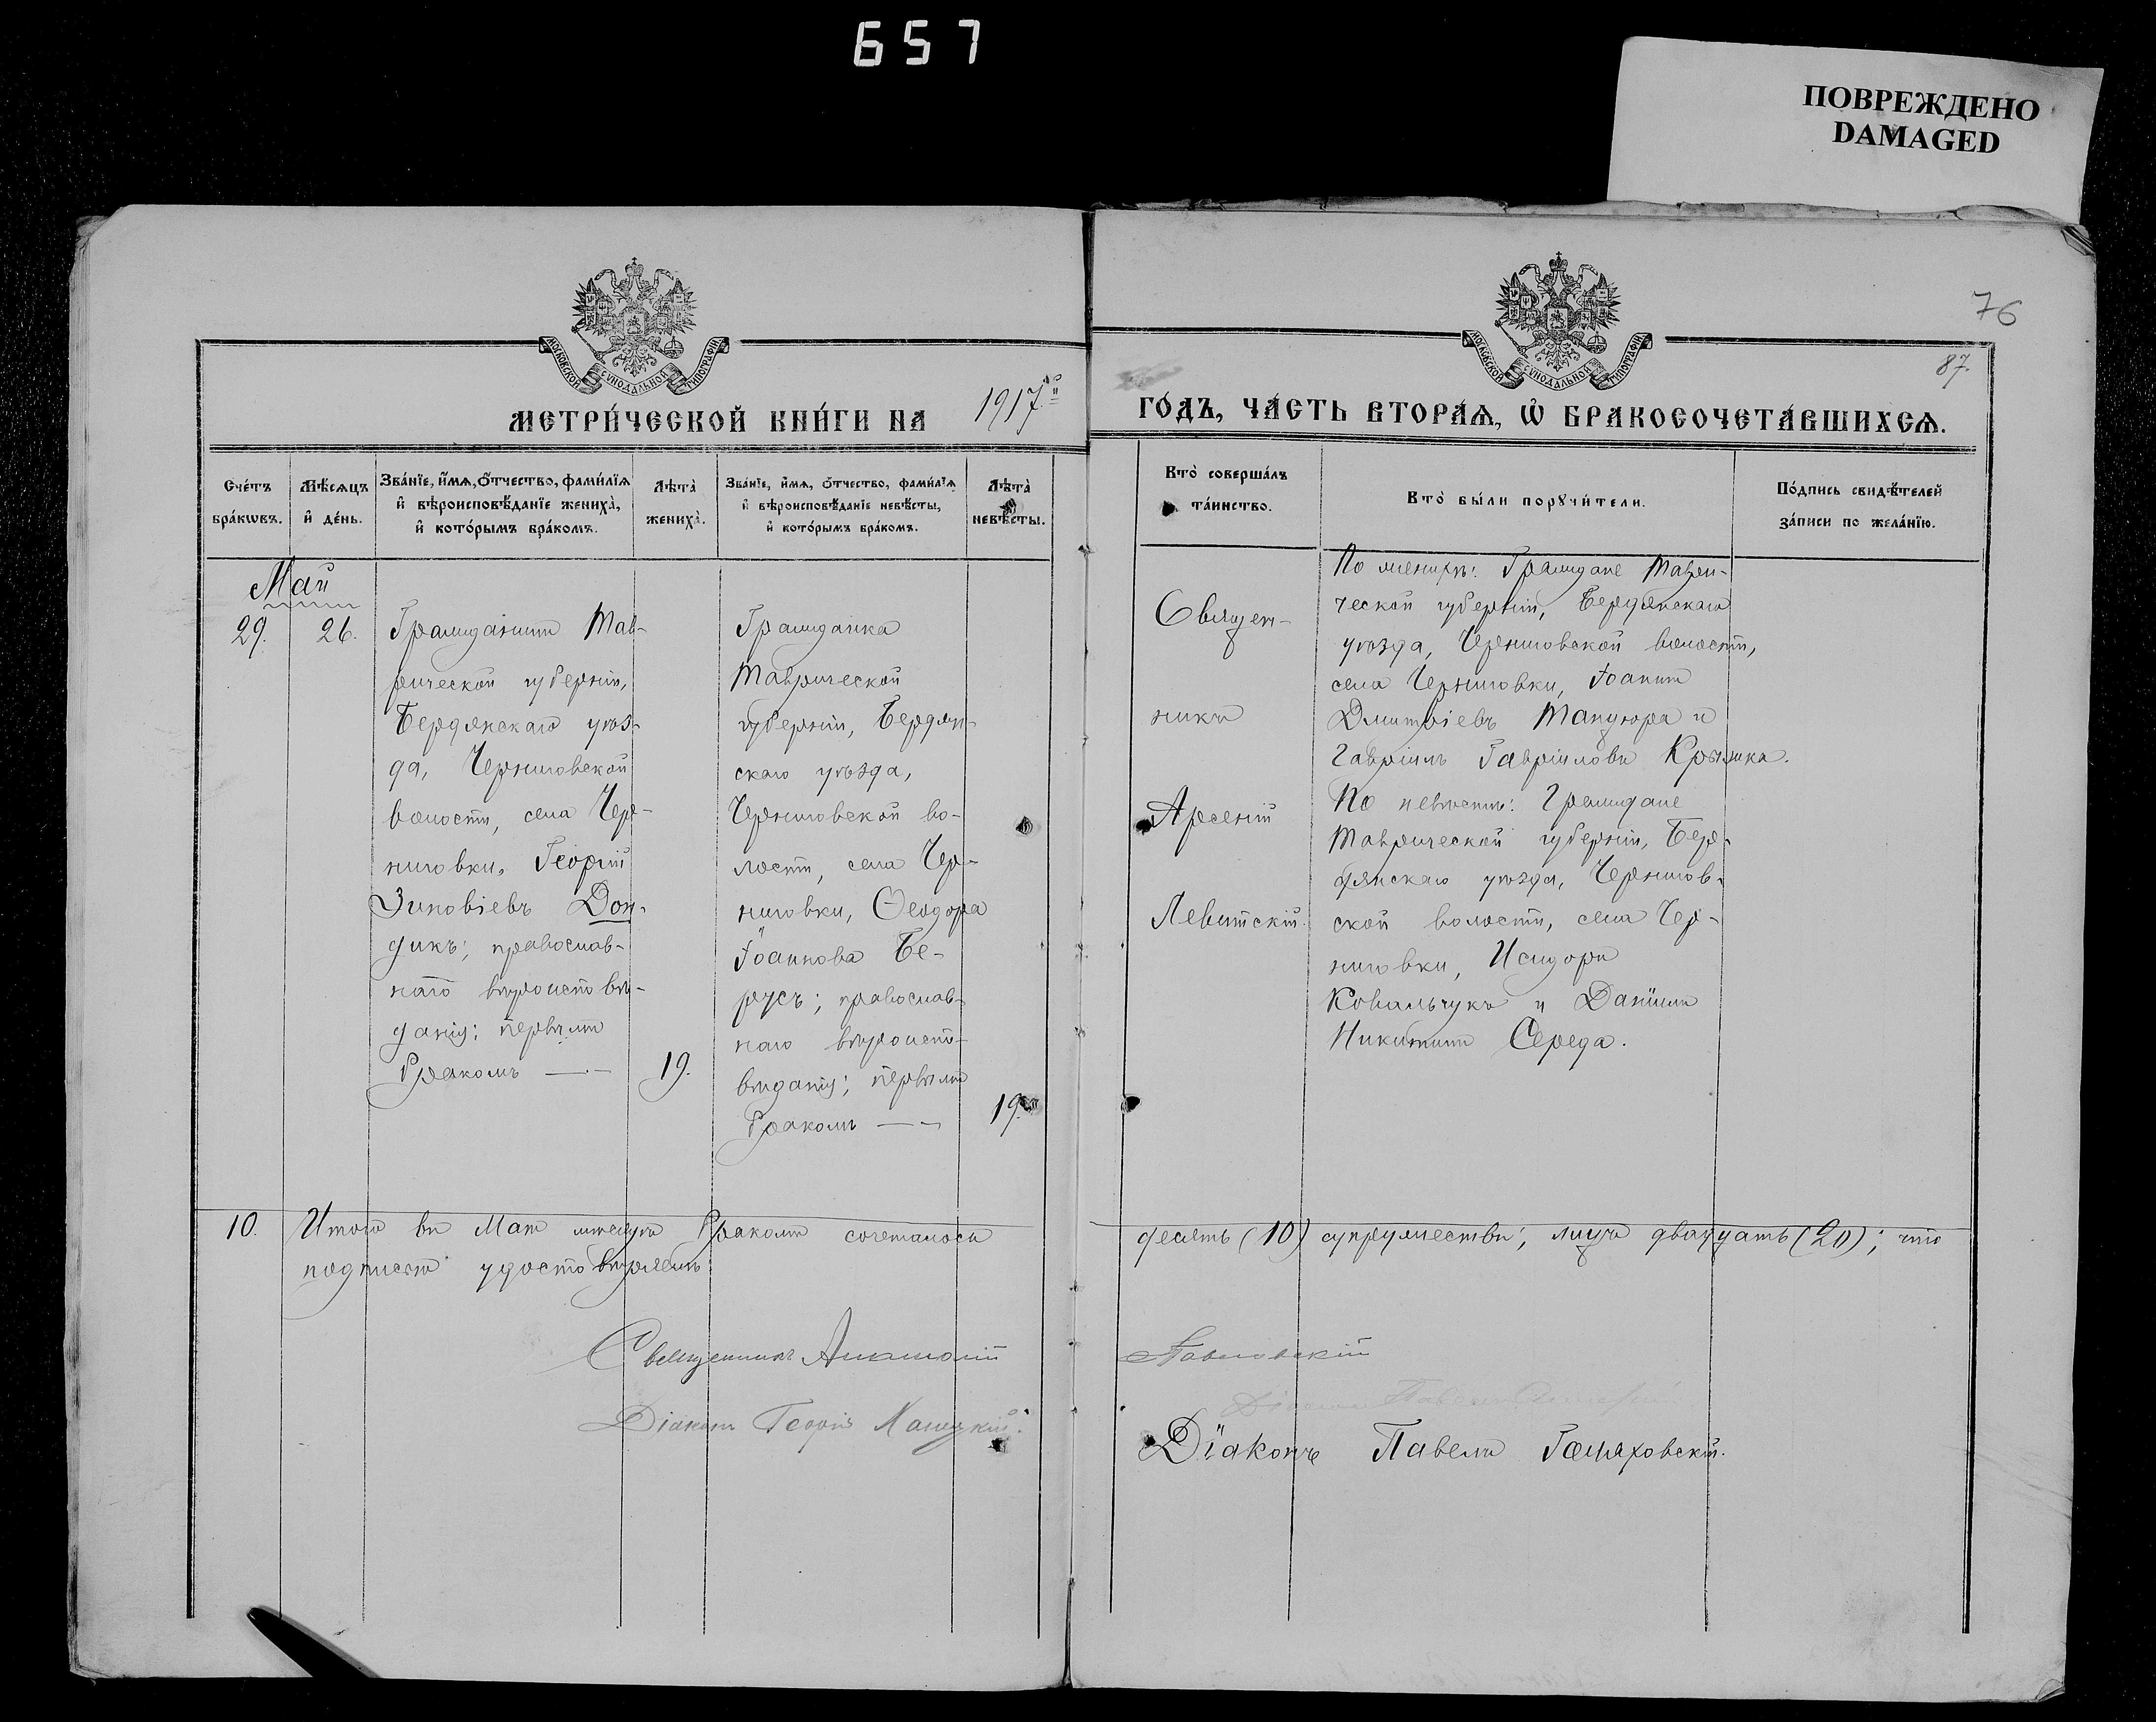 657
ПОВРЕЖДЕНО
DAMAGED
76
87.
МОСКОВСКОЙ СѴНОДАЛЬНОЙ ТИПОГРАФІИ
МОСКОВСКОЙ СѴНОДАЛЬНОЙ ТИПОГРАФІИ
МЕТРИ́ЧЕСКОЙ КНИ́ГИ НА 1917й ГО́ДЪ, ЧА́СТЬ ВТОРА́Ѧ, Ѡ҆ БРАКОСОЧЕТА́ВШИХСѦ.
Сче́тъ
бра́кѡвъ.
Мѣ́сѧцъ
и҆ де́нь.
Зва́нїе, и҆́мѧ, ѻ҆́тчество, фами́лїѧ
и҆ вѣроисповѣ́данїе жениха̀,
и҆ кото́рымъ бра́комъ.
Лѣта̀
жениха̀.
Зва́нїе, и҆́мѧ, ѻ҆́тчество, фами́лїѧ
и҆ вѣроисповѣ́данїе невѣ́сты,
и҆ кото́рымъ бра́комъ.
Лѣта̀
невѣ́сты.
Кто̀ соверша́лъ
та́инство.
Кто̀ бы́ли порꙋчи́тели.
По́дпись свидѣ́телей
за́писи по жела́нїю.
Май
29.
26.
Гражданинъ Тав-
рической губерніи,
Бердянскаго уѣз-
да, Черниговской
волости, села Чер-
ниговки, Георгій
Зиновіевъ Дон-
дикъ; православ-
наго вѣроисповѣ-
данія; первымъ
бракомъ —
19.
Гражданка
Таврической
губерніи, Бердян-
скаго уѣзда,
Черниговской во-
лости, села Чер-
ниговки, Ѳеодора
Іоаннова Бе-
русъ; православ-
наго вѣроиспо-
вѣданія; первымъ
бракомъ —
19.
Священ-
никъ
Арсеній
Левитскій.
По женихѣ: Граждане Таври-
ческой губерніи, Бердянскаго
уѣзда, Черниговской волости,
села Черниговки, Іоаннъ
Дмитріевъ Мандюра и
Гавріилъ Гавріиловъ Крышка.
По невѣстѣ: Граждане
Таврической губерніи, Бер-
дянскаго уѣзда, Чернигов-
ской волости, села Чер-
ниговки, Исидоръ
Ковальчукъ и Даніилъ
Никитинъ Середа.
10. Итого въ Маѣ мѣсяцѣ бракомъ сочеталось десять (10) супружествъ; лицъ двадцать (20); что
подписью удостовѣряемъ
Священникъ Анатолій Павловскій
Діаконъ Георгій
Діаконъ Павелъ